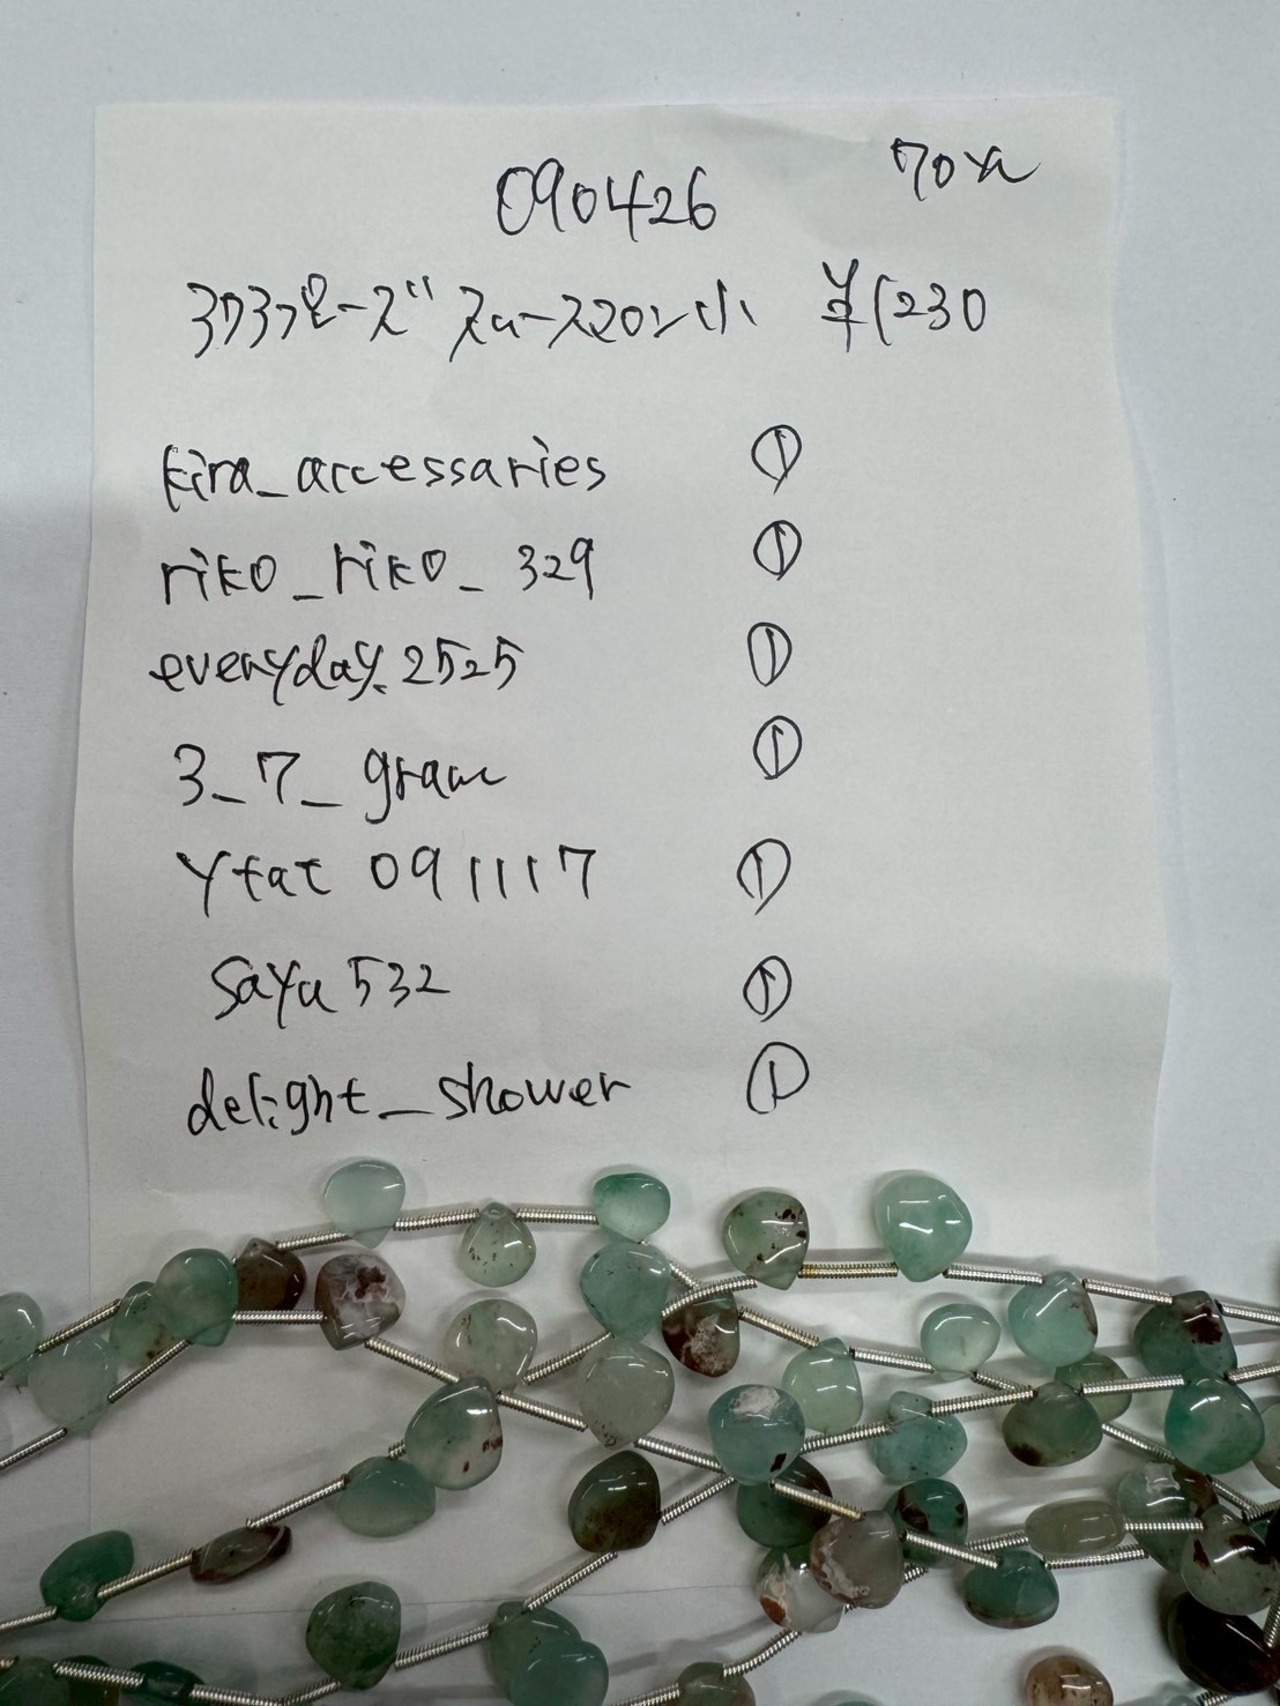 090426
クロムピーズ スムースマロン小 ¥1230
kira_accessaries ①
riko_riko_329 ①
everyday.2525 ①
3_7_gram ①
ytat 091117 ①
saya532 ①
delight_shower ①